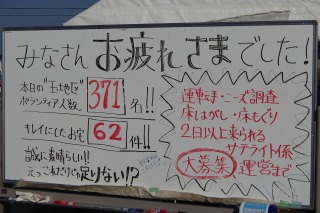 みなさん お疲れさまでした!
本日の"玉土地区"
ボランティア人数 371名!!
キレイにしたお宅 62件!!
誠に素晴らしい!!
えっこれだけじゃ足りない!?
運転手・ニーズ調査
床はがし・床もぐり
2日以上来られる
サテライト係
大募集 運営まで